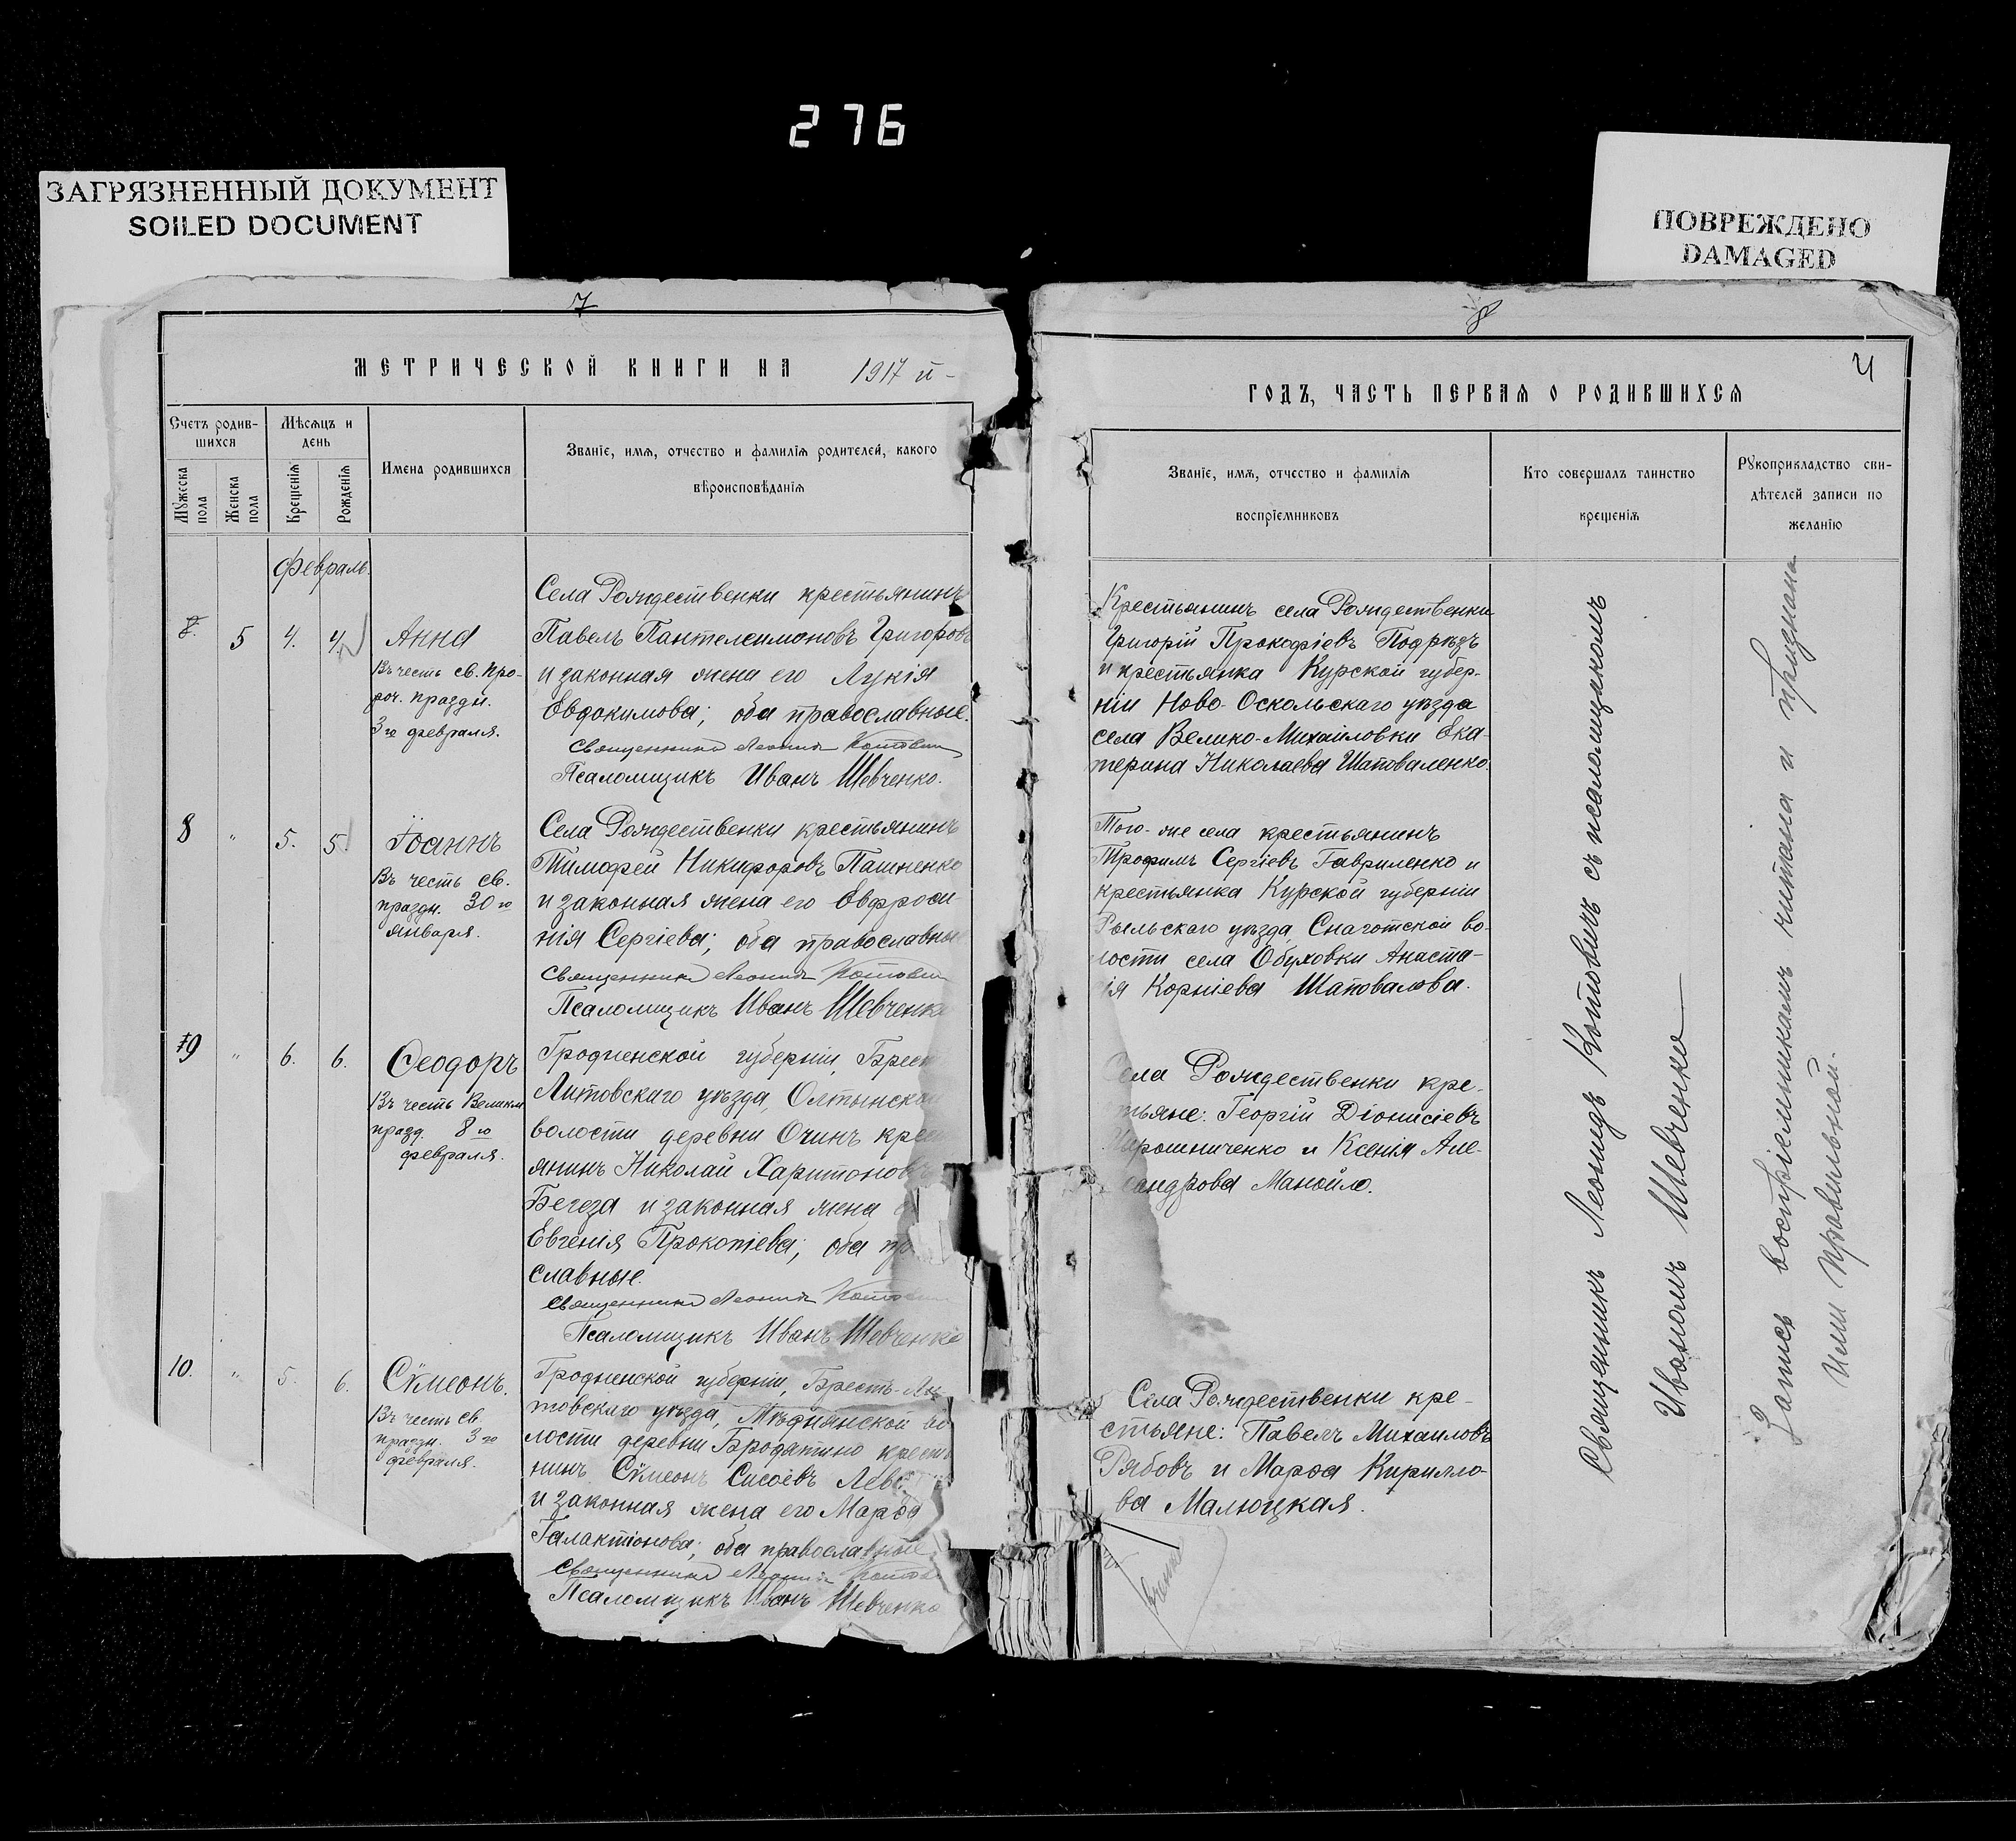 276
ЗАГРЯЗНЕННЫЙ ДОКУМЕНТ
SOILED DOCUMENT
ПОВРЕЖДЕНО
DAMAGED
7
МЕТРИЧЕСКОЙ КНИГИ НА 1917 й-
Счетъ родив-
шихся
Мѣсяцъ и
день
Имена родившихся
Званіе, имя, отчество и фамилія родителей, какого
вѣроисповѣданія
Мужеска
пола
Женска
пола
Крещенія
Рожденія
Февраль.
5 4. 4.
Анна
Въ честь св. про-
роч. праздн.
3го февраля.
Села Рождественки крестьянинъ
Павелъ Пантелеимоновъ Григоровъ
и законная жена его Лукія
Евдокимова; оба православные.
Священникъ Леонидъ Котовичъ
Псаломщикъ Иванъ Шевченко.
8 " 5. 5.
Іоаннъ
Въ честь св.
праздн. 30го
января.
Села Рождественки крестьянинъ
Тимофей Никифоровъ Пашненко
и законная жена его Евфроси-
нія Сергіева; оба православны
Священникъ Леонидъ Котович
Псаломщикъ Иванъ Шевченко
9 " 6. 6.
Ѳеодоръ
Въ честь Великом
празд. 8го
февраля.
Гродненской губерніи, Брест
Литовскаго уѣзда, Олтынской
волости деревни Очинъ крест
янинъ Николай Харитоновъ
Бегеза и законная жена
Евгенія Прокопіева; оба пр
славные.
Священникъ Леонидъ Котович
Псаломщикъ Иванъ Шевченко
10. " 5. 6.
Сѵмеонъ.
Въ честь св.
праздн. 3го
февраля.
Гродненской губерніи, Брестъ-Ли
товскаго уѣзда, Мѣднянской во
лости деревни Бродятино крестья
нинъ Сѵмеонъ Сисоевъ Лев
и законная жена его Марфа
Галактіонова; оба православные
Священникъ Леонидъ Котов
Псаломщикъ Иванъ Шевченко
8
4
ГОДЪ, ЧАСТЬ ПЕРВАЯ О РОДИВШИХСЯ
Званіе, имя, отчество и фамилія
воспріемниковъ
Кто совершалъ таинство
крещенія
Рукоприкладство сви-
дѣтелей записи по
желанію
Крестьянинъ села Рождественки
Григорій Прокофіевъ Подрѣзъ
и крестьянка Курской губер-
ніи Ново-Оскольскаго уѣзда
села Велико-Михайловки Ека-
терина Николаева Шаповаленко.
Того-же села крестьянинъ
Трофимъ Сергіевъ Гавриленко и
крестьянка Курской губерніи
Рыльскаго уѣзда, Снаготской во-
лости села Обуховки Анаста-
ія Корніева Шаповалова.
Села Рождественки кре-
тьяне: Георгій Діонисіевъ
Мирошниченко и Ксенія Але-
андрова Манойло.
Села Рождественки кре-
стьяне: Павелъ Михаиловъ
Рябовъ и Марфа Кирилло-
ва Малюцкая.
Священникъ Леонидъ Котовичъ съ псаломщикомъ
Иваномъ Шевченко
Запись воспріемникамъ читана и признана
ими правильной.